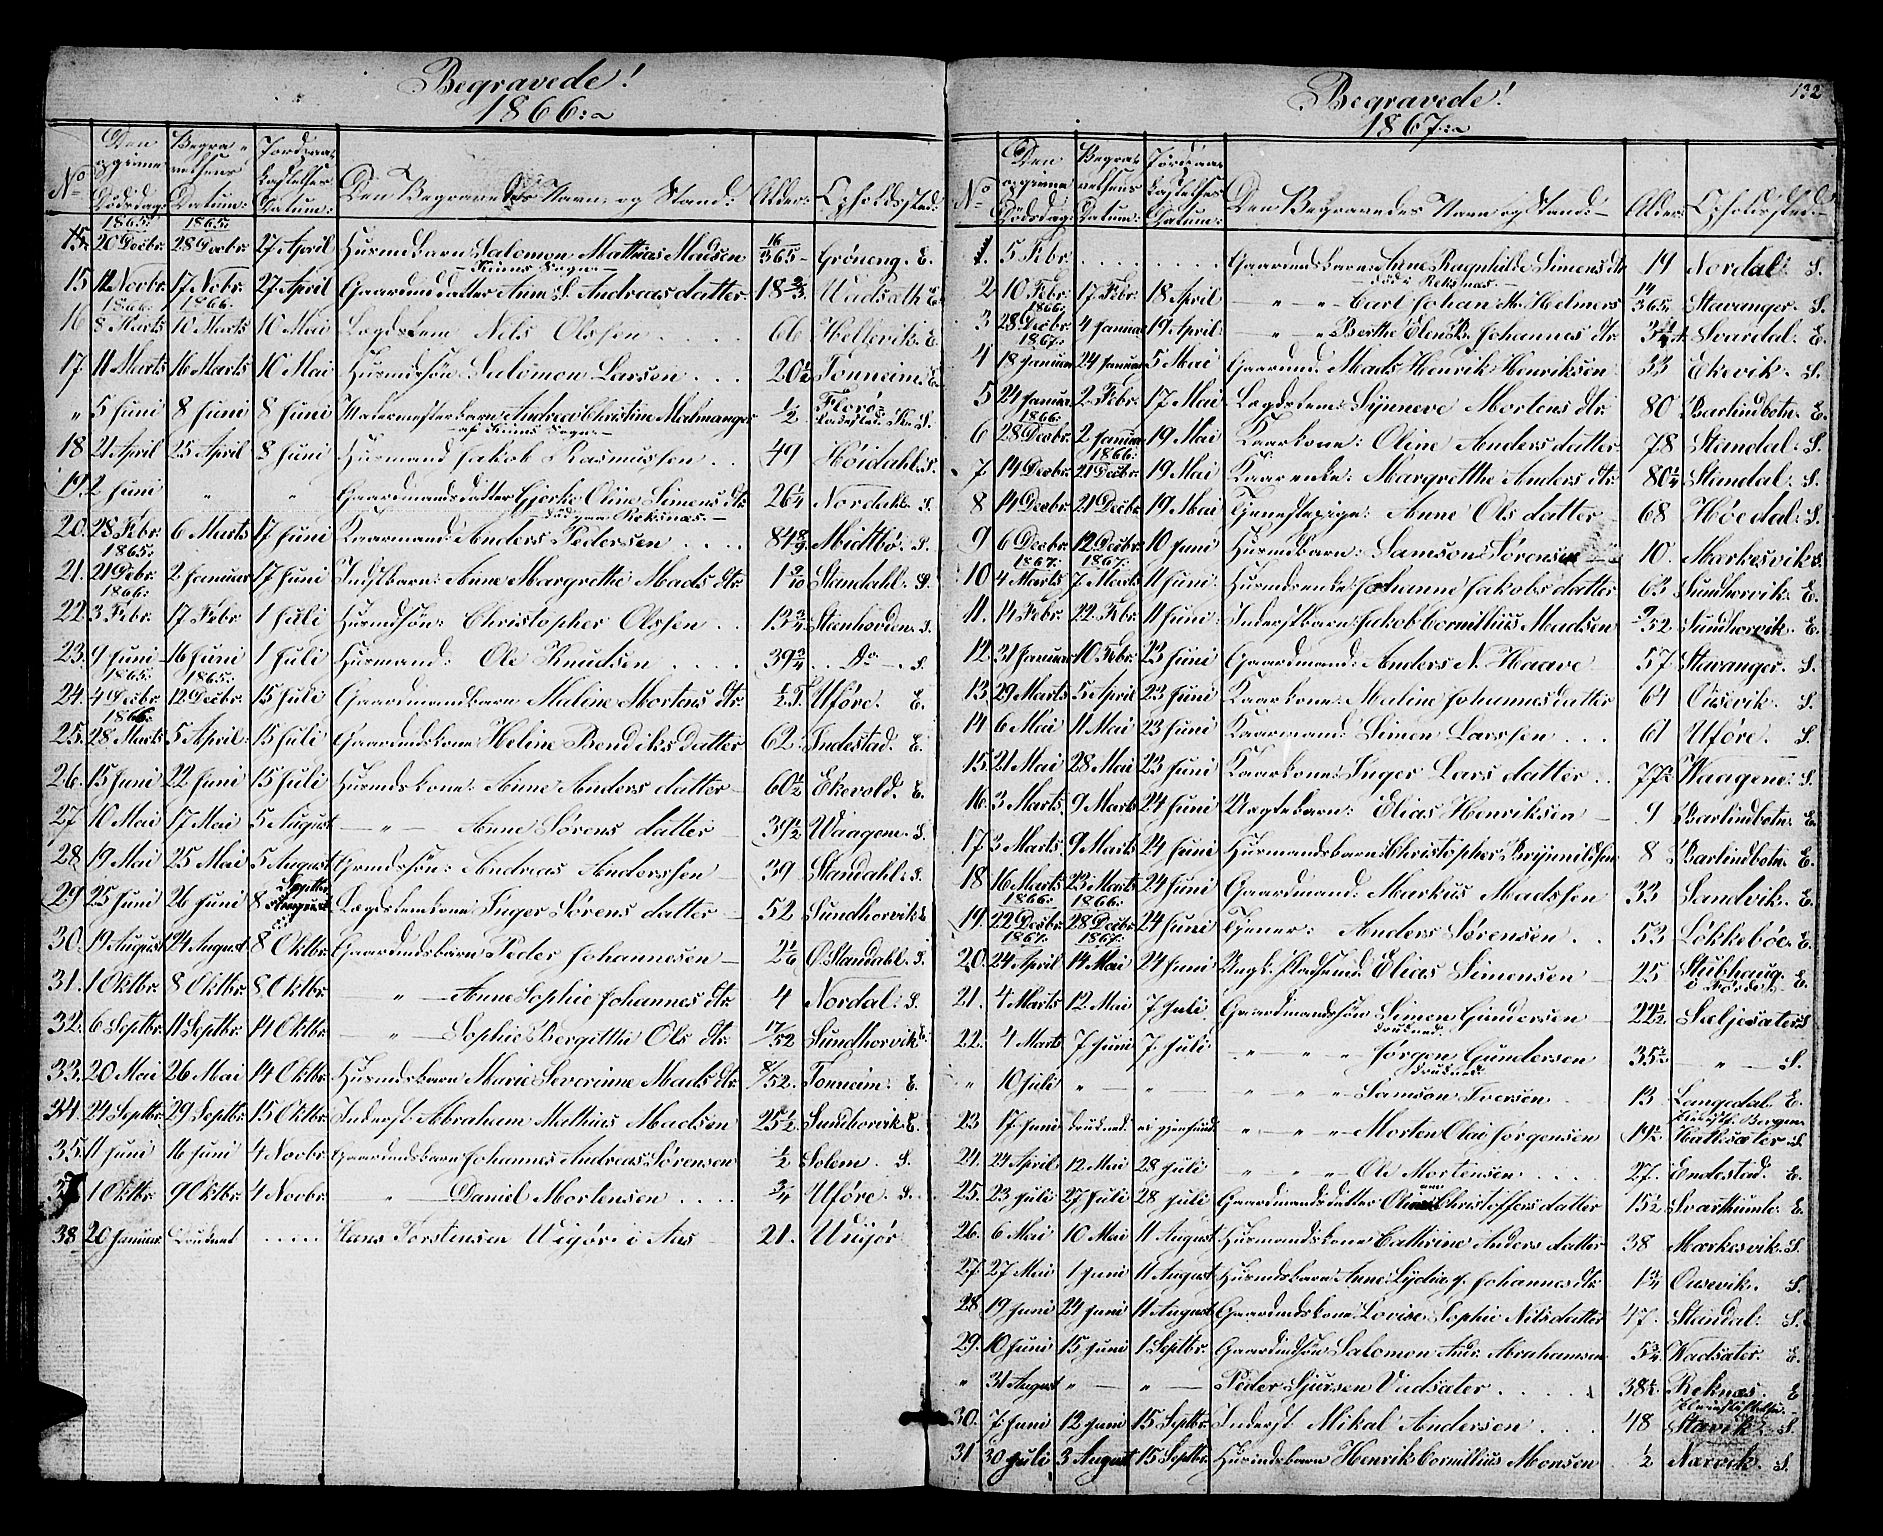 Begravede!
1866:
No
Den egine Dödsdag:
Begravelsens Datum:
Jordpaakastelses Datum:
Den Begravedes Navn og Stand:
Alder:
Opholdssted:
1865: 1865:
15. 20 Decbr. 28 Decbr. 27 April Husmdsbarn Salomon Mathias Madsen 16/365 Gröneng. E.
Kinns Sogn
15 11 Novbr. 17 Novbr. 27 April Gaardmdsdatter Anne S. Andreasdatter 18 2/3 Uadsæth E.
1866: 1866.
16 8 Marts 10 Marts 10 Mai Lægdslem Nils Olssen 66 Hellevik. E.
17. 11 Marts 16 Marts 10 Mai Husmdsön Salomon Larsen 20 1/2 Tonneim: E.
" 5 Juni 8 Juni 8 Juni Andrea Christine Malmanger 1/2 Florö Ladested. S.
af Kinns Sogn
18 21 April 25 April 8 Juni Husmand Jakob Rasmussen 49 Höidahl. S.
19. 2 Juni " " Gaardmandsdatter Gjerke Oline Simens dtr. 26 1/4 Nordahl. S.
Död paa Reksnæs.
20. 28 Febr. 6 Marts 17 Juni Kaarmand Anders Pedersen 84 8/9 Midtbö. S.
1865:
21. 21 Decbr. 2 Januar 17 Juni Indstbarn: Anne Margrethe Mads dtr. 1 9/10 Standahl. S.
1866:
22. 3 Febr. 17 Febr. 1 Juli Husmdsön: Christopher Olssen 13 3/4 Steenhovden. S.
23. 9 Juni 16 Juni 1 Juli Husmand: Ole Knudsen 39 3/4 Do S.
1865: 1865:
24. 4 Decbr. 12 Decbr. 15 Juli Gaardmandsbarn Maline Mortens dtr. Uföre. E.
1866.
25. 28 Marts 5 April: 15 Juli Gaardmdskone Heline Bendiksdatter 62. Indestad. E.
26. 15 Juni 22 Juni 15 Juli Husmdskone: Anne Anders datter 60 1/2 Ekevold. E.
27 10 Mai 17 Mai 5 August — " — Anne Sörens datter 39 1/2 Waagene. S.
28. 19 Mai 25 Mai 5 August Grmdssön: Andreas Anderssen 39 Standahl. S.
29 25 Juni 26 Juni 8 Septbr. Lægdslemskone Inger Sörens datter 52 Sundhorvik E.
30. 19 August 24 August 8 Oktbr. Gaardmdsbarn Peder Johannesen 2 1/6 Ö. Standahl. S.
31. 1 Oktbr. 8 Oktbr. 8 Oktbr. " — Anne Sophie Johannes dtr. 4 Nordal. S.
32. 6 Septbr. 11 Septbr. 14 Oktbr. — " — Sophie Bergitthe Ols dtr. 17/52 Sundhorvik E.
33. 20 Mai 26 Mai 14 Oktbr. Husmdsbarn Marie Severinne Mads dtr. 8/52. Tonneim: E.
34. 24 Septbr. 29 Septbr. 15 Oktbr. Inderst. Abraham Mathias Madsen 25 1/2 Sundhorvik E.
35. 11 Juni 16 Juni 4 Novbr. Gaardmdsbarn Johannes Andreas Sörensen 1/2 Solem. S.
37 1 Oktbr. 9 Oktbr. 4 Novbr. " — Daniel Mortensen 3/4 Uföre. S.
38 20 Januar Druknet Hans Torstensen Uigör i Aas 21. Uuigör
132
Begravede!
1867:
No
Den egine Dödsdag:
Begravelsens Datum:
Jordpaakastelses Datum:
Den Begravedes Navn og Stand:
Alder:
Opholdssted:
1. 5 Febr. Gaardmdsbarn: Anne Ragnhilde Simens dtr 19 Nordal: S.
Död i Reksnæs.
2. 10 Febr. 17 Febr. 18 April — " — " — Carl Johan M. Helmers 14/365 Stavanger. S.
1866:
3 28 Decbr. 4 Januar 19 April. — " — " Berthe Elen B. Johannes dtr. Svardal. E.
1867:
4 18 Januar 24 Januar 5 Mai Gaardmd: Mads Henrik Henriksen 33 Ekevik. S.
5 24 Januar 2 Febr. 17 Mai Lægdslem: Synneve Mortens dtr. 80 Barlindbotn. E.
1866:
6 28 Decbr. 2 Januar 19 Mai Kaarkone: Oline Anders datter 78 Standal: S.
1866:
7. 14 Decbr. 21 Decbr. 19 Mai Kaarenke: Margretthe Anders dtr. 80 1/4 Standal: S.
8 14 Decbr. 21 Decbr. 19 Mai Tjenestepige: Anne Ols datter 68 Höedal. S.
9 6 Decbr. 12 Decbr. 10 Juni Husmdsbarn: Samson Sörensen 10. Markesvik S.
1867: 1867:
10 4 Marts 7 Marts 11 Juni: Husmdsenke Johanne Jakobs datter 63 Sundhorvik. E.
11. 14 Febr. 22 Febr. 11 Juni Inderstbarn: Jakob Cornillius Madsen 9/52 Sundhorvik. E.
12 31 Januar 10 Febr. 23 Juni Gaardmand: Anders N. Haave 57 Stavanger. S.
13 29 Marts 5 April 23 Juni Kaarkone: Maline Johannesdatter 64 Ousevik. S.
14 6 Mai 11 Mai 23 Juni Kaarmand: Simen Larssen 61 Uföre. S.
15. 21 Mai 28 Mai 23 Juni Kaarkone: Inger Lars datter 77 1/2 Waagene: S.
16. 3 Marts 9 Marts 24 Juni Uægtebarn: Elias Henriksen 9 Barlindbotn. E.
17. 3 Marts 9 Marts 24 Juni Husmandsbarn Christopher Brynnildsen 8 Barlindbotn. E.
18 16 Marts 23 Marts 24 Juni Gaardmand: Markus Madssen 33 Sandvik. E.
1866: 1866:
19. 22 Decbr. 28 Decbr. 24 Juni Tjener: Anders Sörensen 53 Lökkeböe. E.
1867. 1867.
20. 24 April 14 Mai 24 Juni Elias Simensen 25 Stubhaug. i Förde. E.
21. 4 Marts 12 Mai 7 Juli Gaardmandssön Simen Gundersen 22 1/2 Sæljesæter S.
druknet:
22. 4 Marts 7 Juni 7 Juli " — " — " Jörgen Gundersen 35 1/2 — " — S.
druknet:
" 10 Juli " — " " — " — " Samson Iversen 13 Langedal. E.
23 17 Juni druknet ei gjenfundet " — " — " — Morten Olai Jörgensen 19 1/2 Hatlesæter. S.
24. 24 April 12 Mai 28 Juli " — " — " — Ole Mortensen 27. Endestad. E.
25. 23 Juli 27 Juli 28 Juli Gaardmandsdatter Oline Christoffersdatter 15 1/2 Svarthumle. E.
26. 6 Mai 10 Mai 11 August Husmandskone Cathrine Anders datter 38 Markesvik. S.
27. 27 Mai 1 Juni 11 August Husmdsbarn: Anne Lydia J. Johannes dtr. 1 3/4 Ousevik. S.
28 19 Juni 24 Juni 11 August Gaardmdskone: Lovise Sophie Nilsdatter 47. Standal: S.
29. 10 Juni 15 Juni 1 Septbr. Gaardmdssön Salomon And. Abrahamsen 5 3/4 Wadsæter. E.
" 31 August " — " — Peder Sjursen Vadsæter 38 1/2. Reknæs. E.
30. 7 Juni 12 Juni 15 Septbr. Inderst. Mikal Andersen 48 Stavik S.
31 30 Juli 3 August 15 Septbr. Husmdsbarn Henrik Cornillius Monsen 1/2 Nærvik. S.